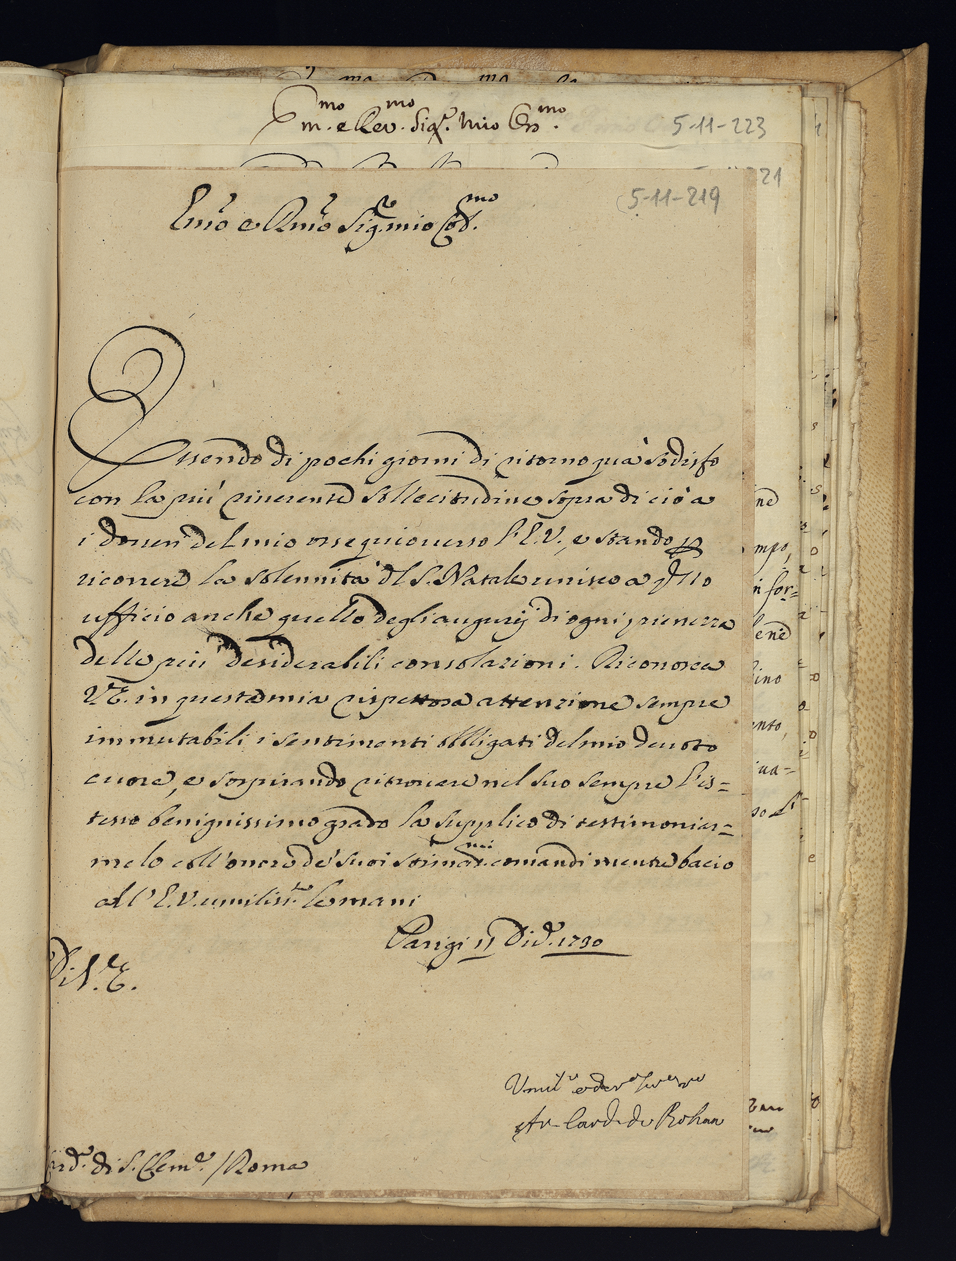 Em.mo e Rev.mo Sig.r Mio Oss.mo
5-11-223
21
5-11-219
Em̃o e Rmo Sig.re mio Col.mo
Essendo di pochi giorni di ritorno quà sodisfo
con la più riverente sollecitudine sopra di ciò a
i doveri del mio ossequio verso l'E.V., e stando p
ricorrere la solennità del S. Natale unisco a q̃sto
ufficio anche quello degli augurij di ogni pienezza
delle più desiderabili consolazioni. Riconosca
V.E. in questa mia rispettosa attenzione sempre
immutabili i sentimenti obbligati del mio devoto
cuore, e sospirando ritrovare nel suo sempre l'is=
tesso benignissimo grado la supplico di testimoniar=
melo coll'onore de' suoi stimat.mi comandi mentre bacio
all'E.V. umiliss.te le mani
Parigi 11 Di.
Di V.E.
1730
Umil.o e dev.o
Ar. Card. de Rohan
ard. di S. Clem.e / Roma
ne
mpo,
n for=
lene
lino
ento,
ua=